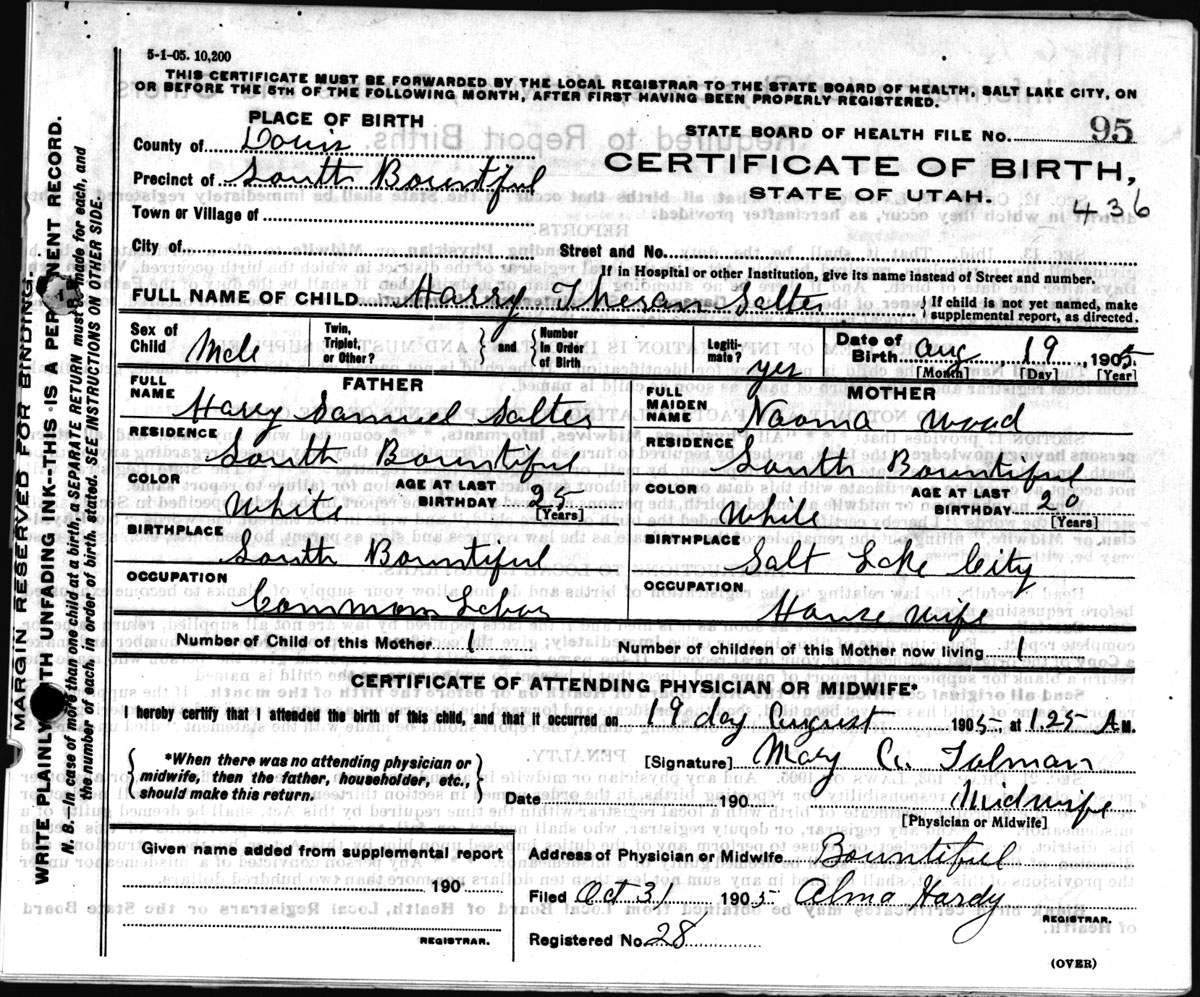 5-1-05. 10,200
THIS CERTIFICATE MUST BE FORWARDED BY THE LOCAL REGISTRAR TO THE STATE BOARD OF HEALTH, SALT LAKE CITY, ON
OR BEFORE THE 5TH OF THE FOLLOWING MONTH, AFTER FIRST HAVING BEEN PROPERLY REGISTERED.
PLACE OF BIRTH
STATE BOARD OF HEALTH FILE NO. 95
County of Davis
CERTIFICATE OF BIRTH,
Precinct of South Bountiful
STATE OF UTAH.
436
Town or Village of
City of Street and No.
If in Hospital or other Institution, give its name instead of Street and number.
FULL NAME OF CHILD Harry Theran Salter { If child is not yet named, make supplemental report, as directed.
Sex of Child Male Twin, Triplet, or Other? } and { Number in Order of Birth Legitimate? yes Date of Birth Aug 19 1905
[Month] [Day] [Year]
FATHER MOTHER
FULL NAME Harry Samuel Salter FULL MAIDEN NAME Naoma Wood
RESIDENCE South Bountiful RESIDENCE South Bountiful
COLOR White AGE AT LAST BIRTHDAY 25 [Years] COLOR While AGE AT LAST BIRTHDAY 20 [Years]
BIRTHPLACE South Bountiful BIRTHPLACE Salt Lake City
OCCUPATION Common Labor OCCUPATION House Wife
Number of Child of this Mother 1 Number of children of this Mother now living 1
CERTIFICATE OF ATTENDING PHYSICIAN OR MIDWIFE*
I hereby certify that I attended the birth of this child, and that it occurred on 19 day August 1905 at 1.25 A M.
{ *When there was no attending physician or midwife, then the father, householder, etc., should make this return. }
[Signature] Mary A. Tolman
Date 190 Midwife
[Physician or Midwife]
Given name added from supplemental report
Address of Physician or Midwife Bountiful
190
Filed Oct 31 1905 Alma Hardy
REGISTRAR.
REGISTRAR.
Registered No. 28
(OVER)
MARGIN RESERVED FOR BINDING.
WRITE PLAINLY WITH UNFADING INK--THIS IS A PERMENENT RECORD.
N. B.--In case of more than one child at a birth, a SEPARATE RETURN must be made for each, and
the number of each, in order of birth, stated. SEE INSTRUCTIONS ON OTHER SIDE.